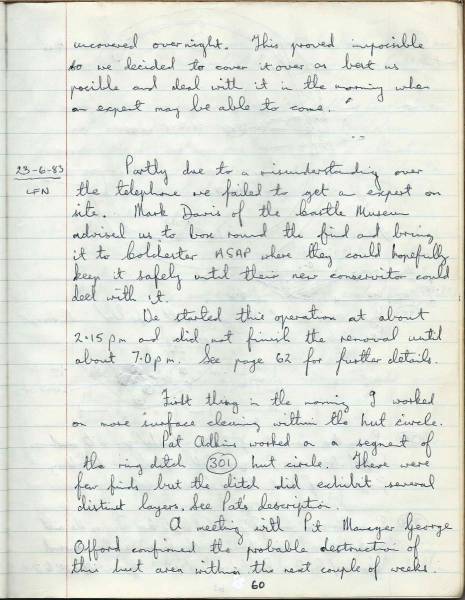 uncovered overnight. This proved impossible
so we decided to cover it over as best as
possible and deal with it in the morning when
an expert may be able to come.
23-6-83
LFN
Partly due to a misunderstanding over
the telephone we failed to get an expert on
site. Mark Davis of the Castle Museum
advised us to box round the find and bring
it to Colchester ASAP where they could hopefully
keep it safely until their new conservator could
deal with it.
We started this operation at about
2.15pm and did not finish the removal until
about 7.0pm. See page 62 for further details.
First thing in the morning I worked
on more surface cleaning within the hut circle.
Pat Adkins worked on a segment of
the ring ditch 301 hut circle. There were
few finds but the ditch did exhibit several
distinct layers. See Pats description.
A meeting with Pit Manager George
Offord confirmed the probable destruction of
this hut area within the next couple of weeks.
60